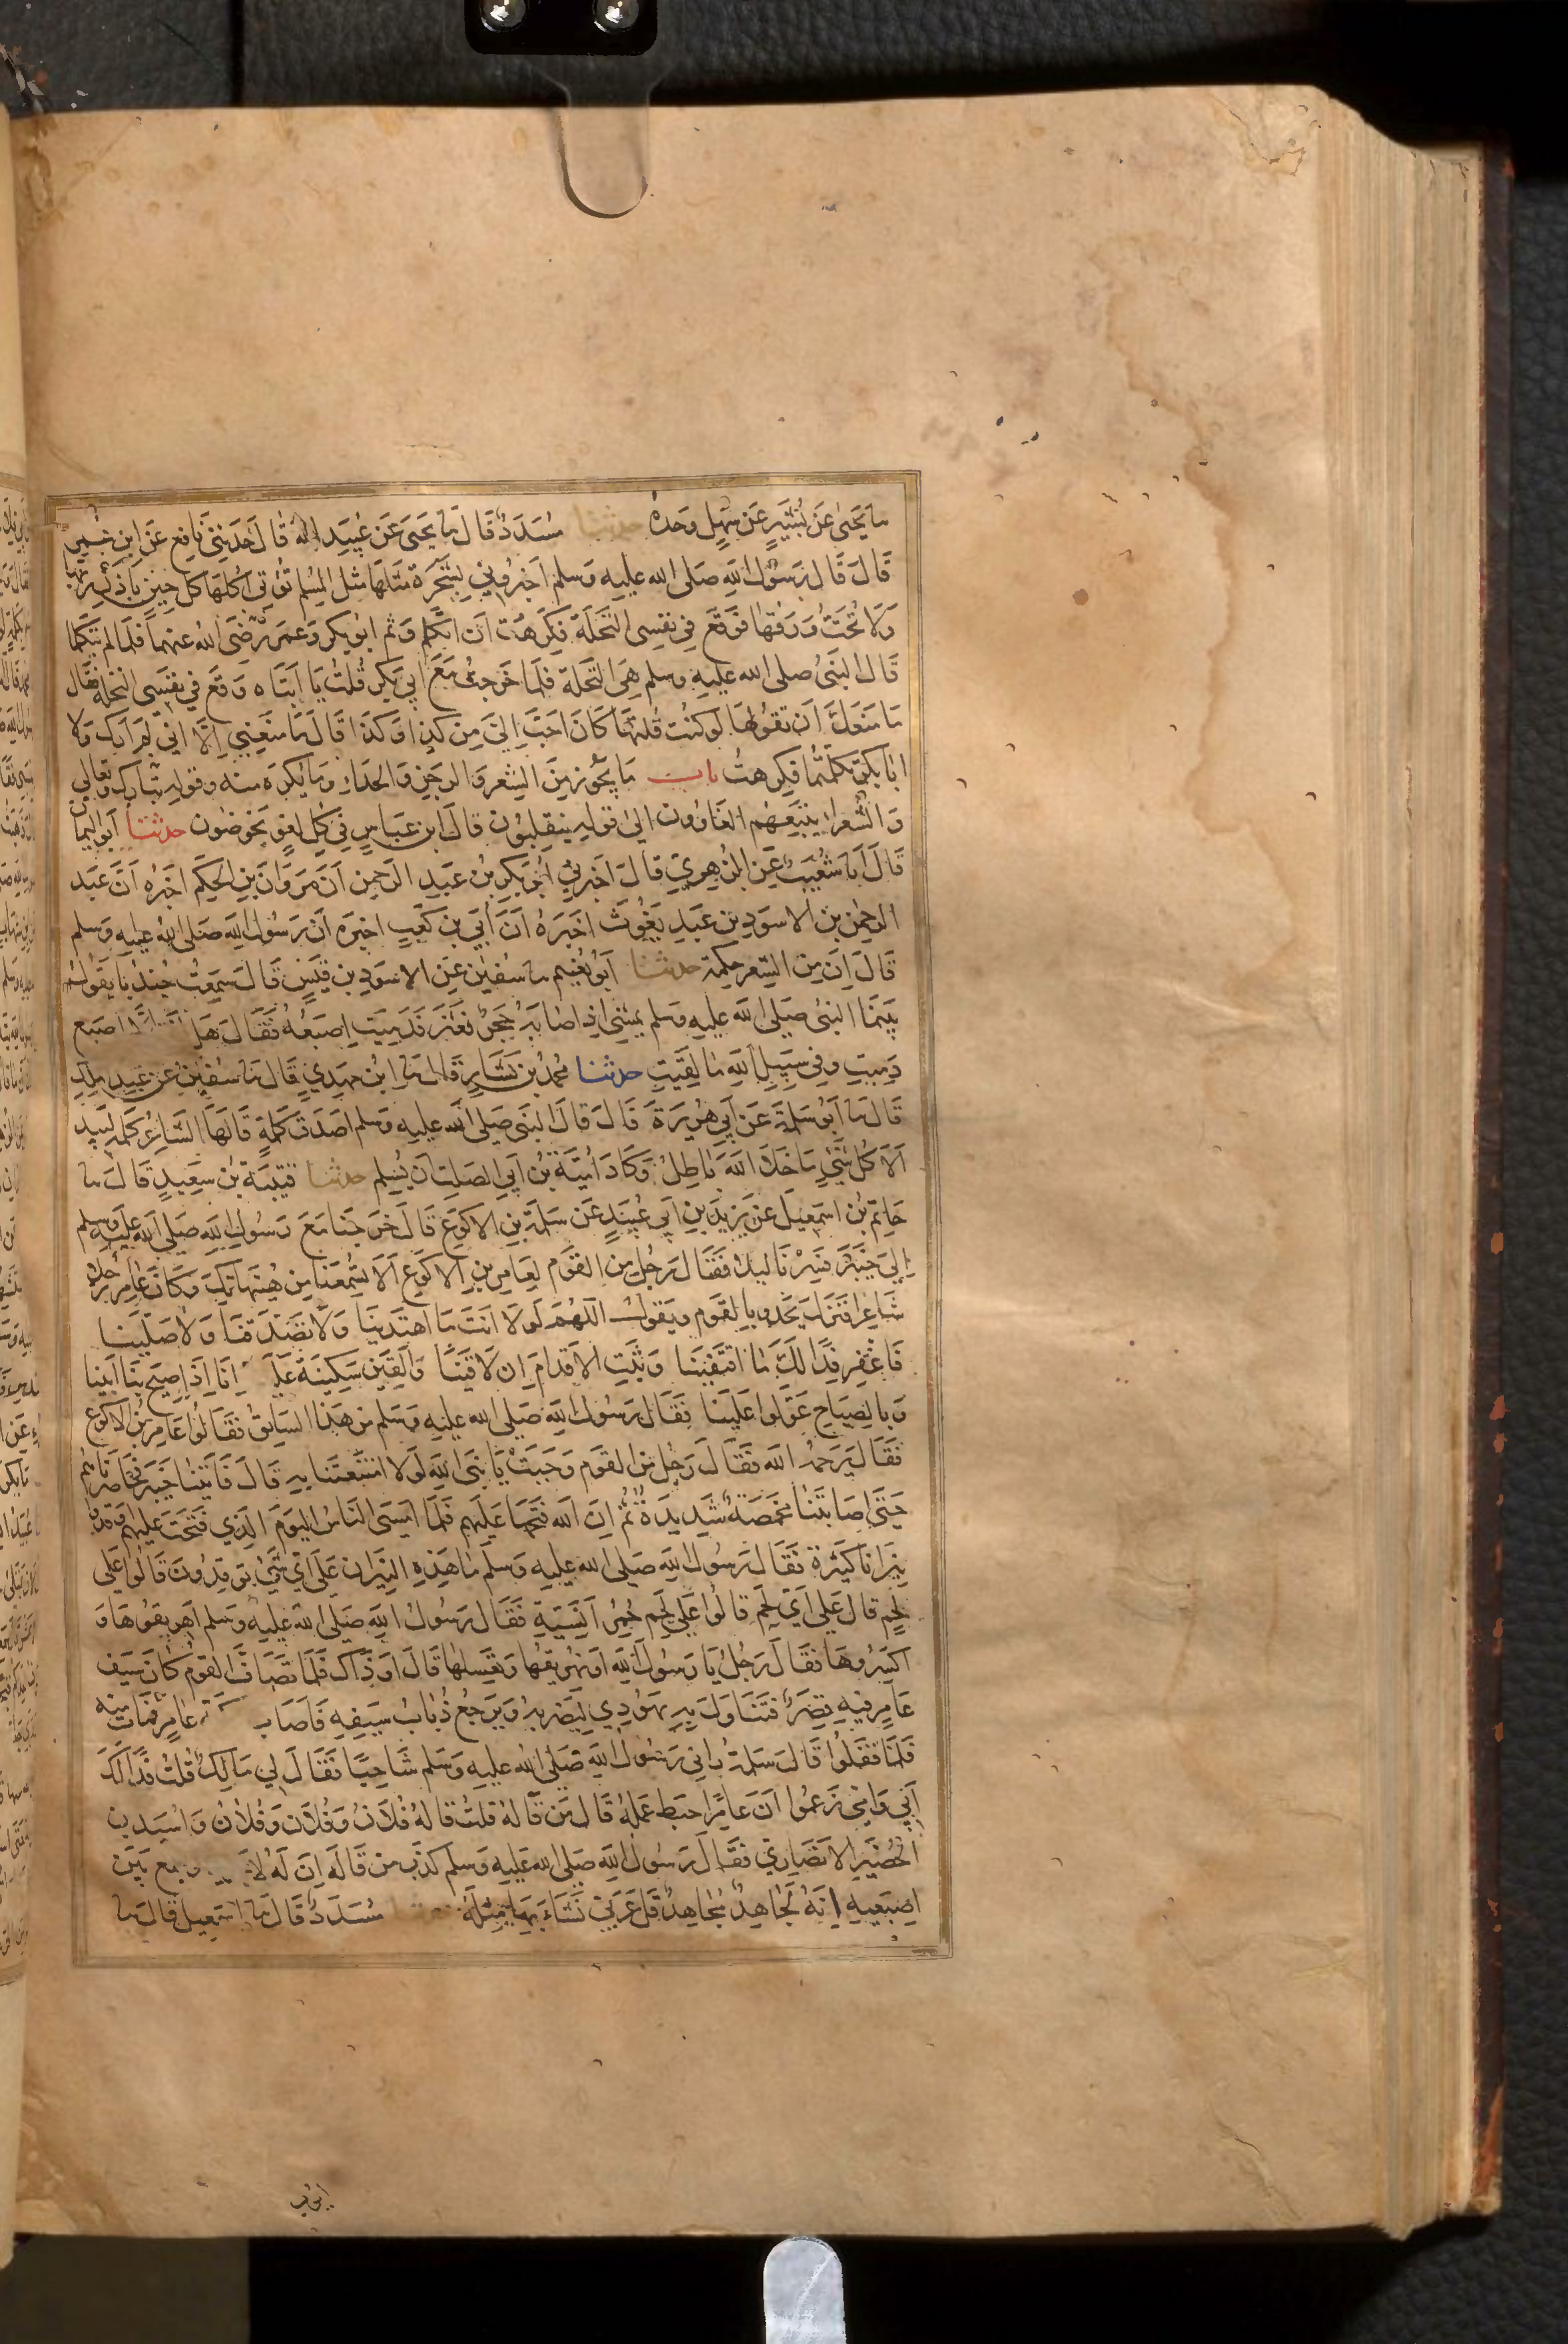 ما يحيى عن بشير عن سهل وحده حدثنا مسدد قال ما يحيى عن عبيد الله قال حدثني نافع عن ابن عمر
قال قال رسول الله صلى الله عليه وسلم اخبروني بشجرة مثلها مثل المسلم تؤتي اكلها كل حين باذن ربها
ولا تحت ورقها فوقع في نفسي النخلة فكرهت ان اتكلم وثم ابو بكر وعمر رضي الله عنهما فلما لم يتكلما
قال النبي صلى الله عليه وسلم هي النخلة فلما خرجت مع ابي بكر قلت يا ابتاه وقع في نفسي النخلة فقال
ما منعك ان تقولها لو كنت قلتها كان احب الي من كذا وكذا قال ما منعني الا اني لم ارك ولا
ابا بكر تكلمتما فكرهت باب ما يجوز من الشعر والرجز والحداء وما يكره منه وقوله تبارك وتعالى
والشعراء يتبعهم الغاوون الى قوله ينقلبون قال ابن عباس في كل لغو يخوضون حدثنا ابو اليمان
قال انا شعيب عن الزهري قال اخبرني ابو بكر بن عبد الرحمن ان مروان بن الحكم اخبره ان عبد
الرحمن بن الاسود بن عبد يغوث اخبره ان ابي بن كعب اخبره ان رسول الله صلى الله عليه وسلم
قال ان من الشعر حكمة حدثنا ابو نعيم ما سفين عن الاسود بن قيس قال سمعت جندبا يقول
بينما النبي صلى الله عليه وسلم يمشي اذ اصابه حجر فعثر فدميت اصبعه فقال هل انت الا اصبع
دميت وفي سبيل الله ما لقيت حدثنا محمد بن بشار قال ما ابن مهدي قال ما سفين عن عبد الملك
قال ما ابو سلمة عن ابي هريرة قال قال النبي صلى الله عليه وسلم اصدق كلمة قالها الشاعر كلمة لبيد
الا كل شيء ما خلا الله باطل وكاد امية بن ابي الصلت ان يسلم حدثنا قتيبة بن سعيد قال ما
حاتم بن اسمعيل عن يزيد بن ابي عبيد عن سلمة بن الاكوع قال خرجنا مع رسول الله صلى الله عليه وسلم
الى خيبر فسرنا ليلا فقال رجل من القوم لعامر بن الاكوع الا تسمعنا من هنيهاتك وكان عامر رجلا
شاعرا فنزل يحدو بالقوم ويقول اللهم لولا انت ما اهتدينا ولا تصدقنا ولا صلينا
فاغفر فدا لك ما اقتفينا وثبت الاقدام ان لاقينا والقين سكينة علينا انا اذا صيح بنا اتينا
وبالصياح عولوا علينا فقال رسول الله صلى الله عليه وسلم من هذا السائق فقالوا عامر بن الاكوع
فقال يرحمه الله فقال رجل من القوم وجبت يا نبي الله لولا امتعتنا به قال فاتينا خيبر فحاصرناهم
حتى اصابتنا مخمصة شديدة ثم ان الله فتحها عليهم فلما امسى الناس اليوم الذي فتحت عليهم اوقدوا
نيرانا كثيرة فقال رسول الله صلى الله عليه وسلم ما هذه النيران على اي شيء توقدون قالوا على
لحم قال على اي لحم قالوا على لحم حمر انسية فقال رسول الله صلى الله عليه وسلم اهريقوها و
اكسروها فقال رجل يا رسول الله او نهريقها ونغسلها قال او ذاك فلما تصاف القوم كان سيف
عامر فيه قصر فتناول به يهودي ليضربه ويرجع ذباب سيفه فاصاب عامر فمات منه
فلما قفلوا قال سلمة راني رسول الله صلى الله عليه وسلم شاحبا فقال لي مالك قلت فدا لك
ابي وامي زعموا ان عامرا حبط عمله قال من قاله قلت قاله فلان وفلان وفلان واسيد بن
الحضير الانصاري فقال رسول الله صلى الله عليه وسلم كذب من قاله ان له وجمع بين
اصبعيه انه لجاهد مجاهد قل عربي نشا بها مثله حدثنا مسدد قال ما اسمعيل قال ما
ايوب